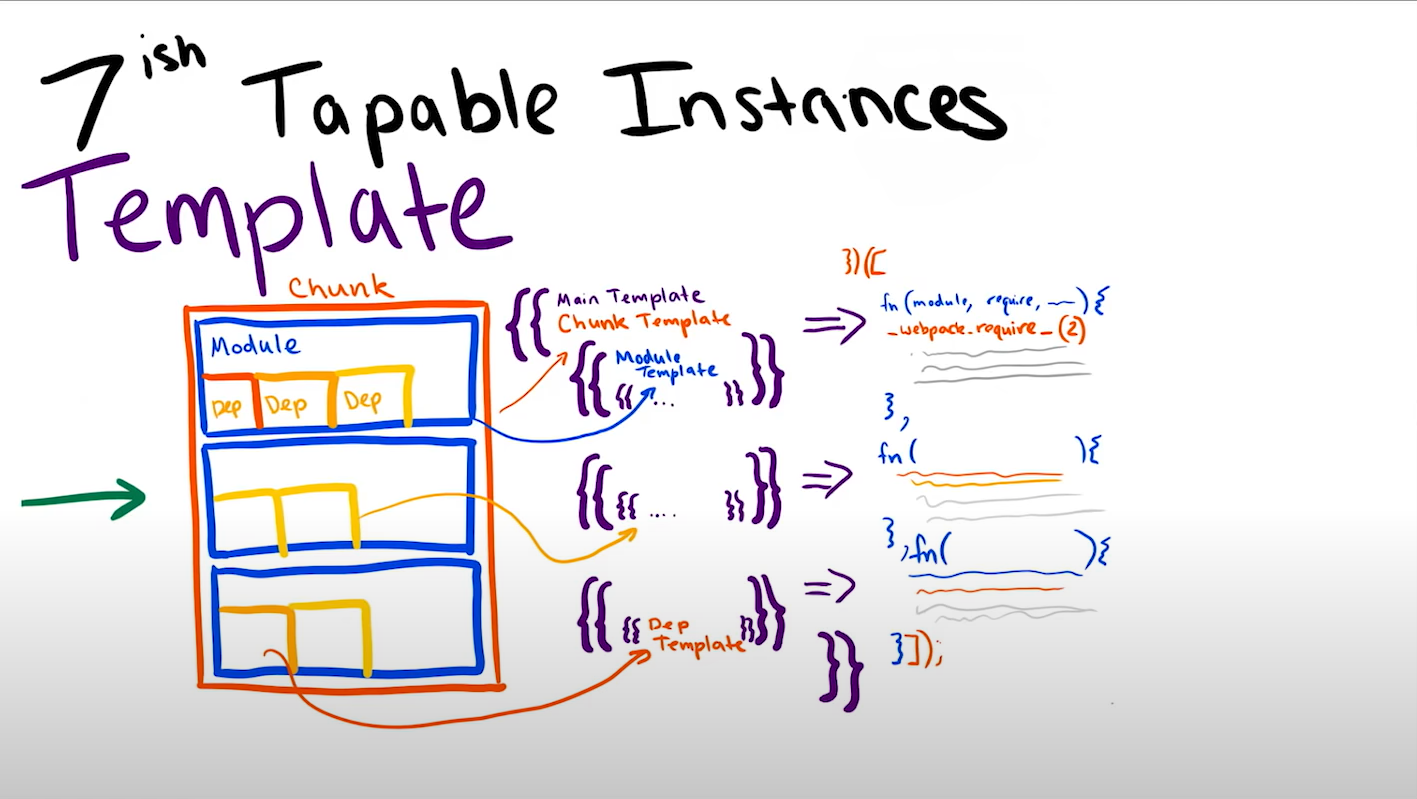 7ish Tapable Instances
Template
Chunk
Module
Dep Dep Dep
{{ Main Template
Chunk Template
{{ Module
Template }}
{{ ... }}
{{ {{ .... }} }}
{{ {{ Dep
Template }} }}
}}
=>
=>
=>
})([
fn (module, require, __) {
_webpack_require_(2)
},
fn( ){
},fn( ){
}]);